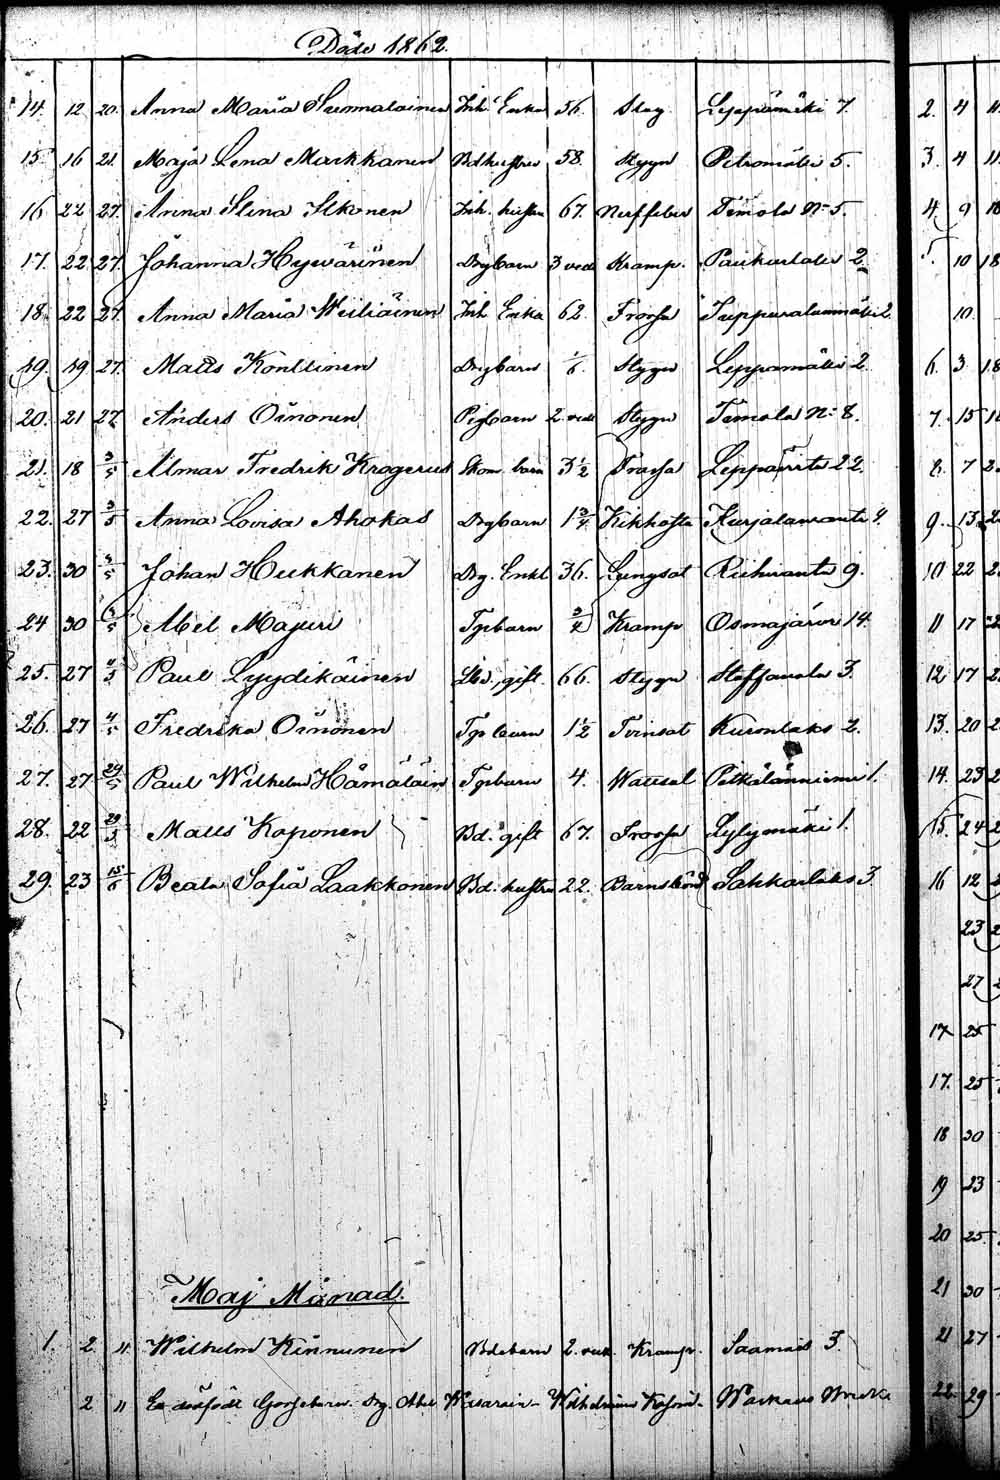 Döde 1862.
14. 12 20. Anna Maria Summalainen Inh. Enka 56. Styg Leppämäki 7.
15. 16 21. Maja Lena Markkanen Bdhustru 58. Stygn Petromäki 5.
16 22 27. Anna Stina Ikonen Inh. hustru 67. Timola No 5.
17. 22 27. Johanna Hyvärinen Drgbarn 3 veck Kramp. Paukarlaks 2
18. 22 27. Anna Maria Weiliäinen Inh Enka 62. Frossa 2.
19. 19 27. Matts Konttinen Drgbarn Stygn Leppämäki 2.
20. 21 27 Anders Oinonen Pigbarn 2 veck Stygn Timola No 8.
21. 18 3/5 Almar Fredrik Krogerus barn 3 1/2 Frossa Leppävirta 22.
22. 27 3/5 Anna Lovisa Ahokas Drgbarn 1 3/4 Kikhosta Kurjalaranta 4.
23. 30 3/5 Johan Hukkanen Drg. Enkl. 36. Lungsot Riihiranta 9.
24 30 Abel Majuri Tpbarn 3/4 Kramp Osmajärvi 14.
25. 27 Paul Lyydikäinen gift 66. Stygn Staffansla 3.
26. 27 4/5 Fredrika Oinonen Tp barn 1 1/2 Tvinsot Kuronlaks 2.
27. 27 Paul Wilhelm Hämäläin Tpbarn 4. Wattusot 1.
28. 22 Matts Koponen Bd. gift 67. Frossa Lylymäki 1.
29. 23 15/6 Beata Sofia Laakkonen Bd. hustru 22. Barnsbörd Sahkarlaks 3.
Maj Månad.
1. 2. 11. Wilhelm Kinnunen Bdebarn 2. veck. Kramp. Saamais 3.
2 11 En dödfödt Gossebarn. Drg. Abel Wilhelmina Warkaus
2. 4 11
3. 4 11.
4. 9 18
5. 10 18
10.
6. 3 18
7. 15
8. 7 2
9. 13 2
10 22 2
11 17 2
12 17 2
13. 20 2
14. 23 2
15. 24 2
16 12 2
23 2
27 2
17 25
17. 25
18 30
19 23
20 25.
21 30
21 27
22. 29